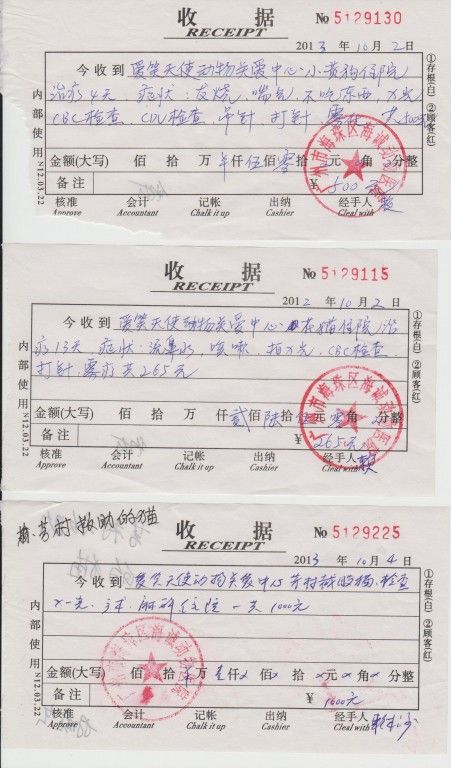 收 据
RECEIPT
№ 5129130
2013 年 10 月 2 日
今 收 到 爱笑天使动物关爱中心·小黄狗住院
治疗4天 症状:发烧,喘气,不吃东西,X光
CBC检查,CDV检查,吊针,打针,雾疗 共500元
金额(大写) 佰 拾 万 仟伍佰零拾 元 角 分整
备 注
¥ 500 元
核准 会计 记帐 出纳 经手人
Approve Accountant Chalk it up Cashier Cleal with
内部使用 N12.03.22
①存根(白) ②顾客(红)
广州市海珠区海诚动物医院
收 据
RECEIPT
№ 5129115
2012 年 10 月 2 日
今 收 到 爱笑天使动物关爱中心 花猫住院治
疗13天 症状:流鼻水,咳嗽,拍X光,CBC检查
打针 雾疗共265元
金额(大写) 佰 拾 万 仟贰佰陆拾伍元零角 分整
备 注
¥ 265元
核准 会计 记帐 出纳 经手人
Approve Accountant Chalk it up Cashier Cleal with
内部使用 N12.03.22
①存根(白) ②顾客(红)
广州市海珠区海诚动物医院
芳村救助的猫
收 据
RECEIPT
№ 5129225
2013 年 10 月 4 日
今 收 到 爱笑天使动物关爱中心 芳村 猫 检查
X-光 手术 麻醉 住院 一共1000元
金额(大写) 佰 拾 万壹仟 佰 拾 元 角 分整
备 注
¥ 1000元
核准 会计 记帐 出纳 经手人
Approve Accountant Chalk it up Cashier Cleal with
内部使用 N12.03.22
①存根(白) ②顾客(红)
广州市海珠区海诚动物医院